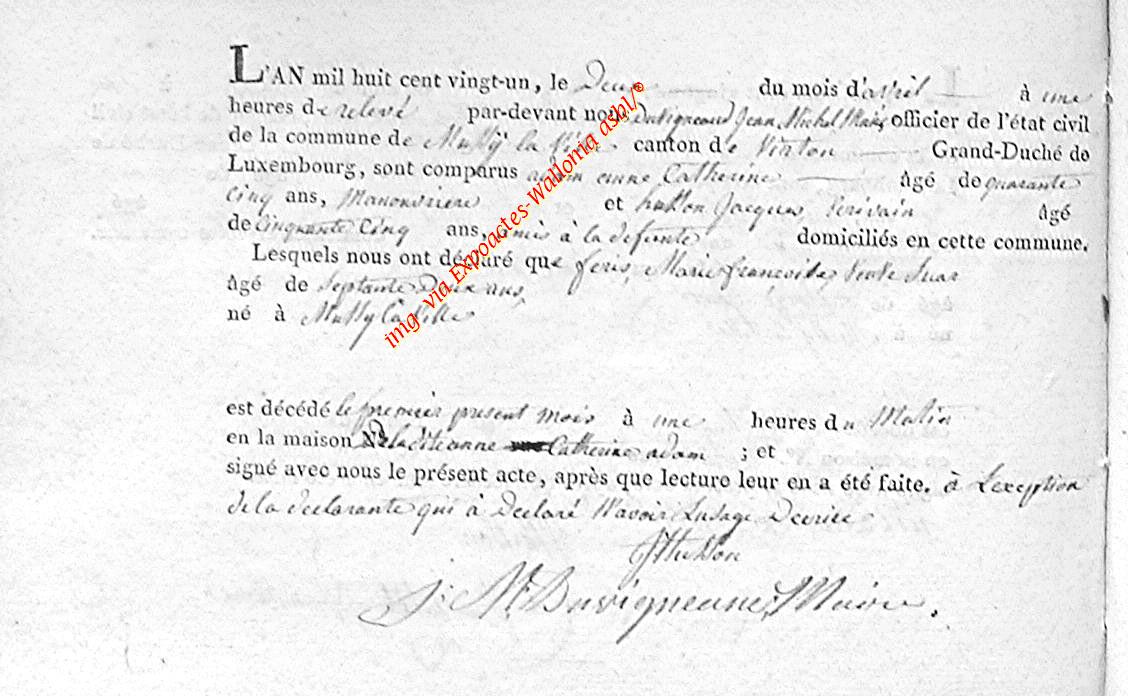 L'AN mil huit cent vingt-un, le Deux du mois d'avril à une
heures de relevé par-devant nous Duvigneaud Jean Michel Maire officier de l'état civil
de la commune de Mussÿ la ville canton de Virton Grand-Duché de
Luxembourg, sont comparus adam anne Catherine âgé de quarante
cinq ans, Manouvriere et husson Jacques, Ecrivain âgé
de Cinquante Cinq ans, amis à la defunte domiciliés en cette commune.
Lesquels nous ont déclaré que feris, Marie francoise, veuve
âgé de Septante Deux ans,
né à Mussy la Ville
est décédé le premier present mois à une heures du Matin
en la maison No de laditte anne Catherine adam ; et
signé avec nous le présent acte, après que lecture leur en a été faite. à Lexception
de la declarante qui à Declaré N'avoir Lusage Decrire
JHusson
J: M: Duvigneaud, Maire.
img via Expoactes-Wallonia asbl/®